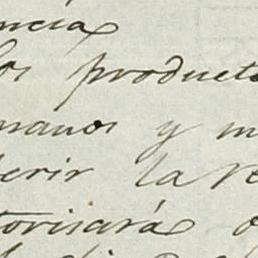 ncia
los product
manos y m
erir la re
torisará